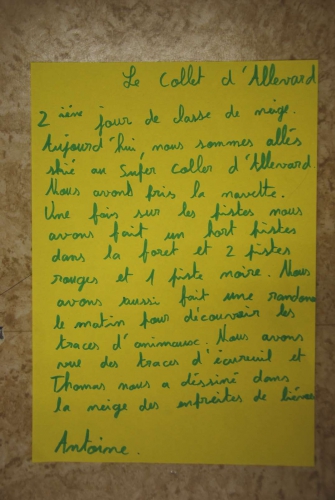 Le Collet d'Allevard
2 ième jour de classe de neige.
Aujourd'hui, nous sommes allés
skié au Super Collet d'Allevard
Nous avons pris la navette.
Une fois sur les pistes nous
avons fait un fort pistes
dans la foret et 2 pistes
rouges et 1 piste noire. Nous
avons aussi fait une randonn
le matin pour découvrir les
traces d'animaux. Nous avons
vue des traces d'écureuil et
Thomas nous a déssiné dans
la neige des enfreites de lièvres
Antoine.